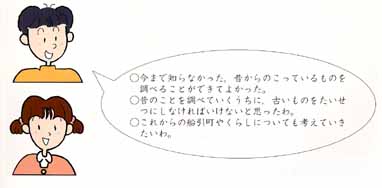 ○今まで知らなかった，昔からのこっているものを
調べることができてよかった。
○昔のことを調べていくうちに，古いものをたいせ
つにしなければいけないと思ったわ。
○これからの船引町やくらしについても考えていき
たいわ。